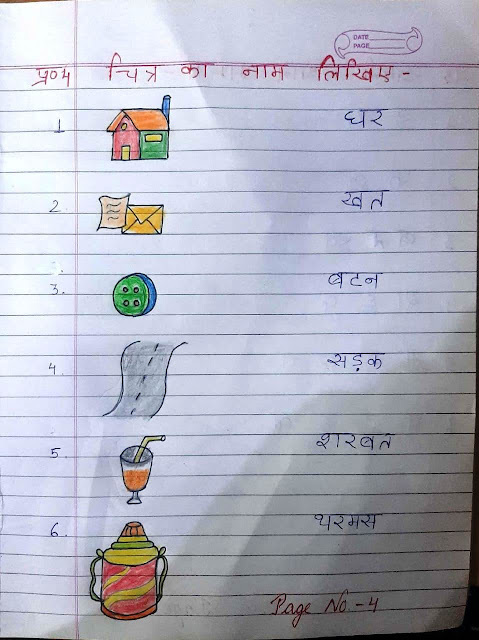 DATE
PAGE
प्र०4 चित्र का नाम लिखिए-
1 घर
2. खत
3. बटन
4. सड़क
5. शरबत
6. थरमस
Page No.-4